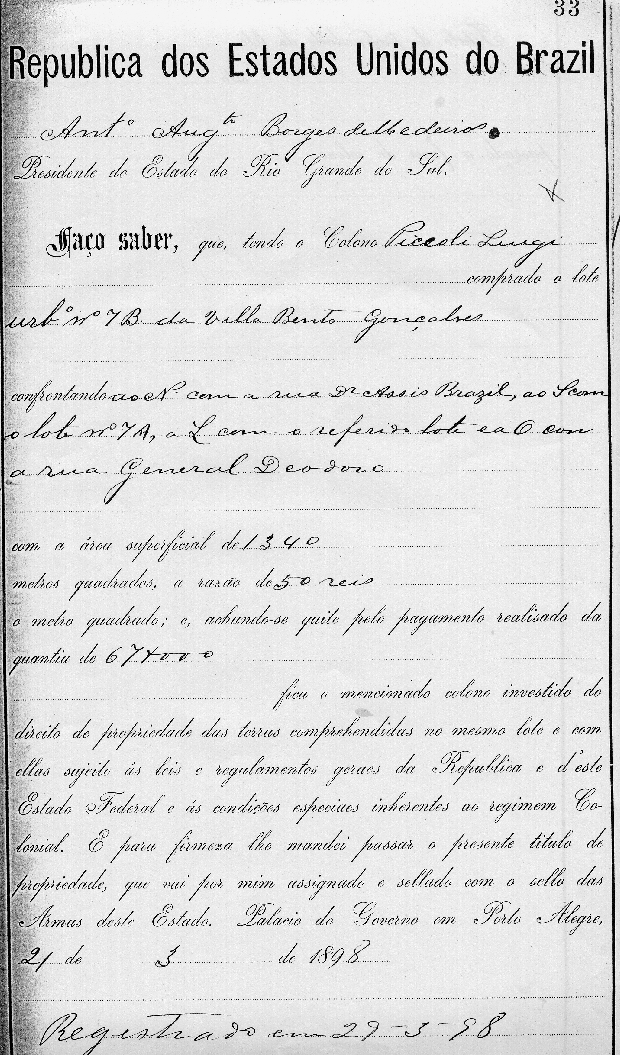 33
Republica dos Estados Unidos do Brazil
Antº Augte Borges de Medeiros.
Presidente do Estado do Rio Grande do Sul.
Faço saber, que, tendo o Colono Piccoli Luigi
comprado o lote
urbº nº 7B da Villa Bento Gonçalves
confrontando ao N. com a rua Dr Assis Brazil, ao S com
o lote nº 7A, a L com o referido lote e a O com
a rua General Deodoro
com a área superficial de 1340
metros quadrados, a razão de 50 reis
o metro quadrado; e, achando-se quite pelo pagamento realisado da
quantia de 67$000
fica o mencionado colono investido do
direito de propriedade das terras comprehendidas no mesmo lote e com
ellas sujeito ás leis e regulamentos geraes da Republica e d'este
Estado Federal e ás condições especiaes inherentes ao regimem Co-
lonial. E para firmeza lhe mandei passar o presente titulo de
propriedade, que vai por mim assignado e sellado com o sello das
Armas deste Estado. Palacio do Governo em Porto Alegre,
21 de 3 de 1898
Registrado em 29-3-98